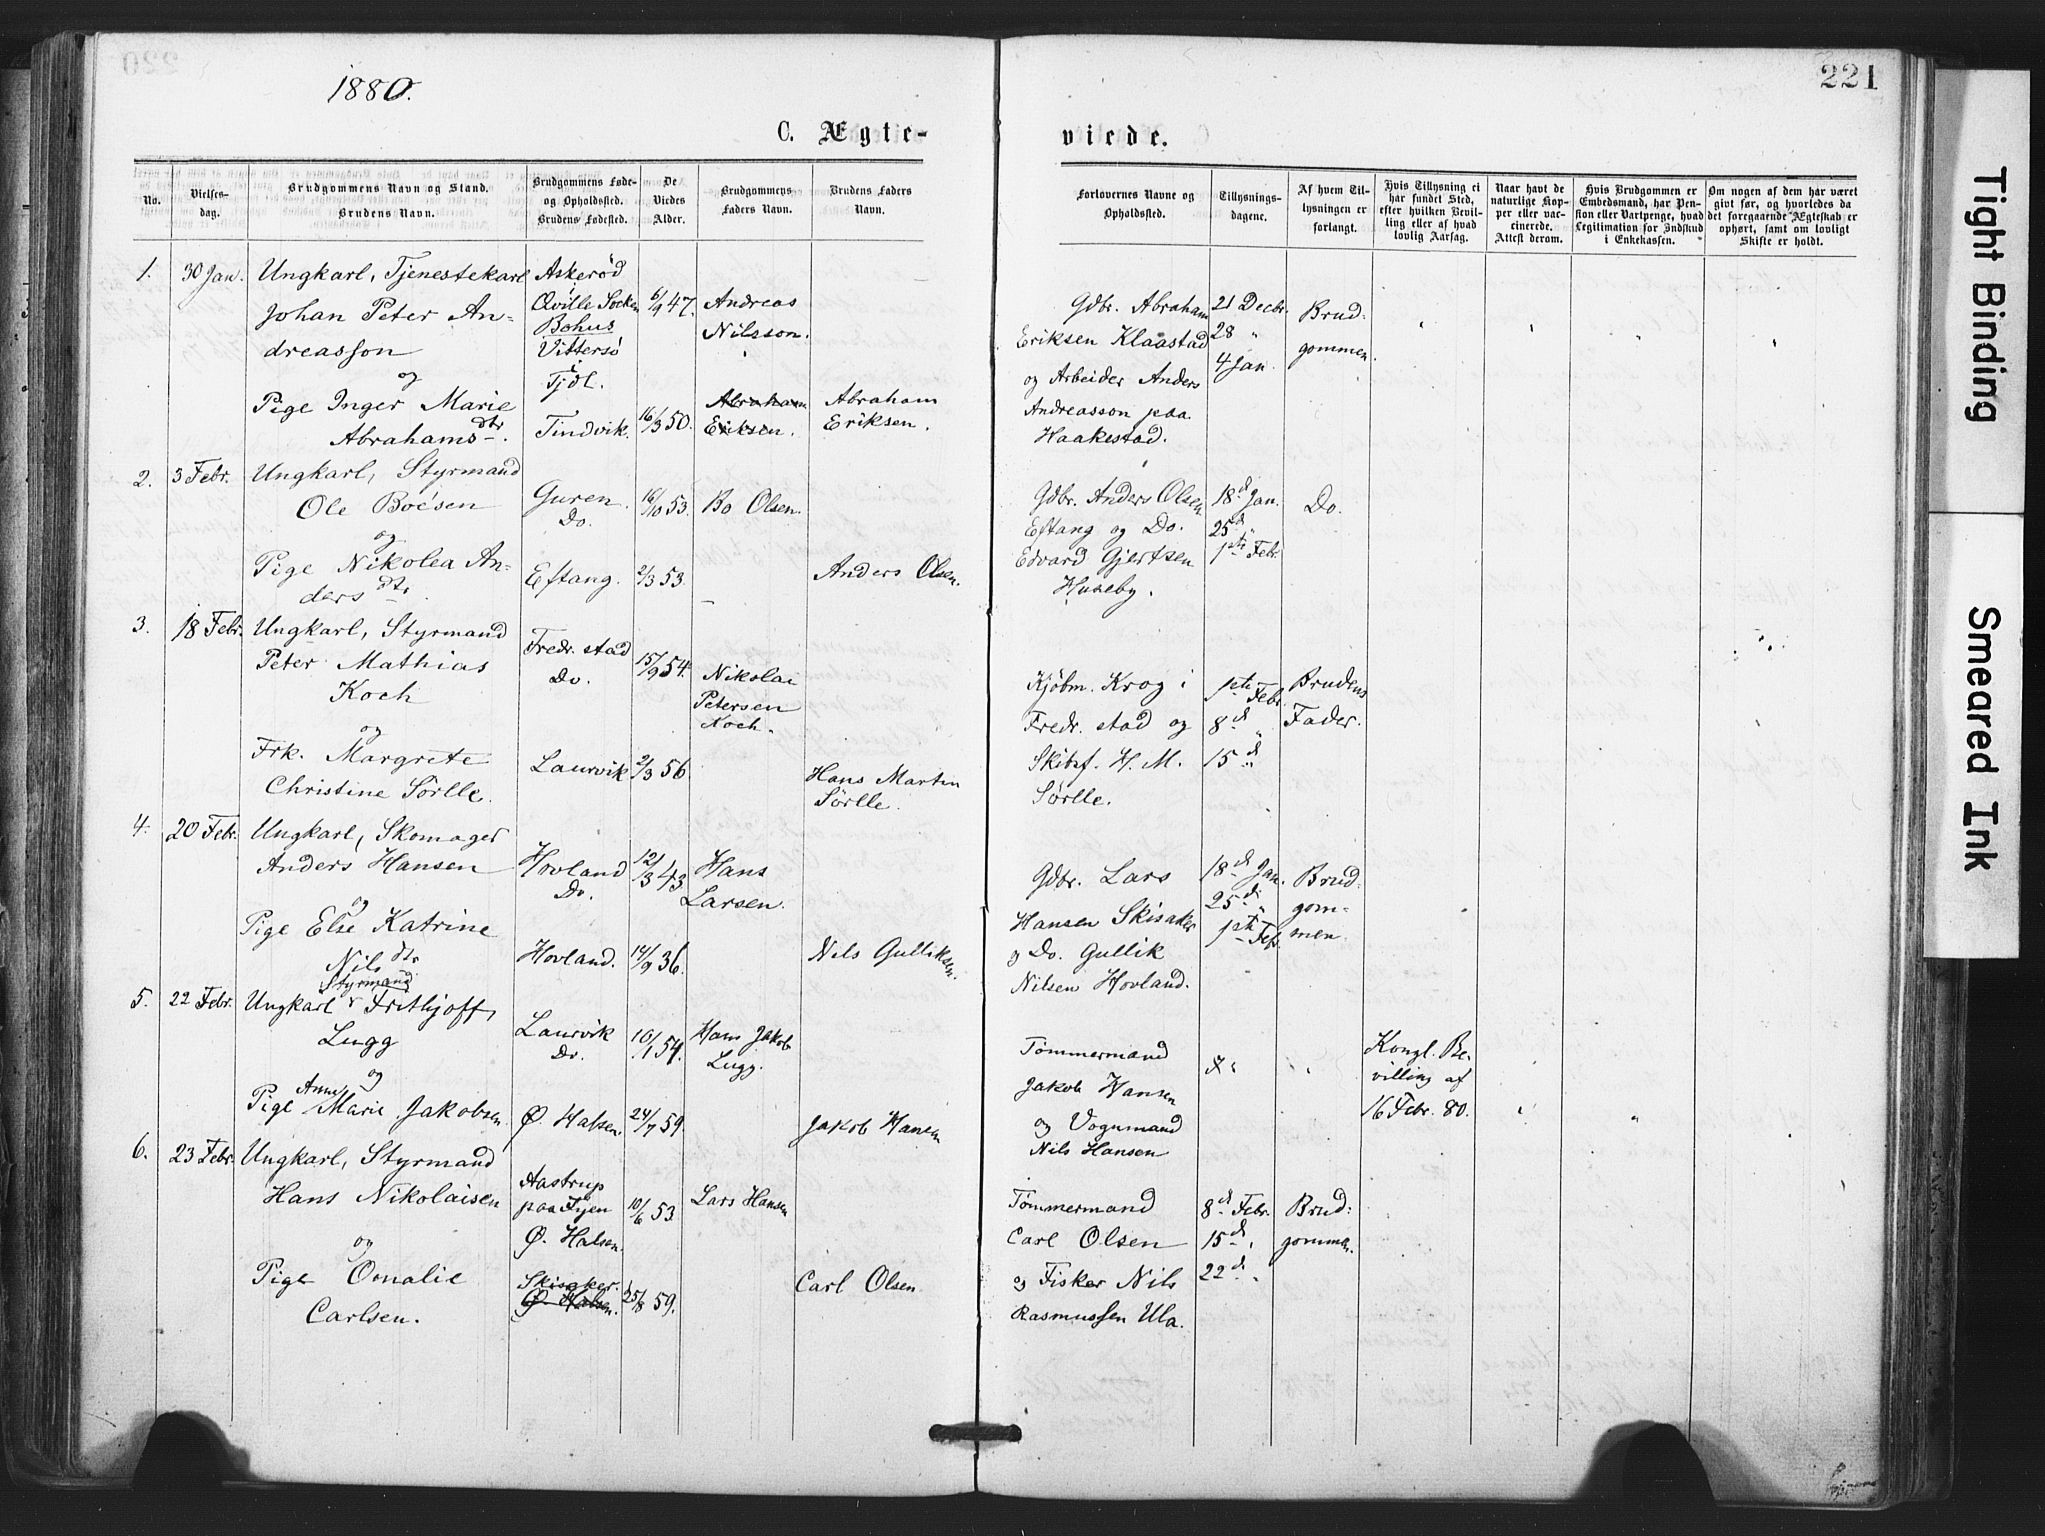 1880.
221
C. Ægte-
viede.
No.
Vielses-
dag.
Brudgommens Navn og Stand.
Brudens Navn.
Brudgommens Føde-
og Opholdssted.
Brudens Fødested.
De
Viedes
Alder.
Brudgommens
Faders Navn.
Brudens Faders
Navn.
Forlovernes Navne og
Opholdssted.
Tillysnings-
dagene.
Af hvem Til-
lysningen er
forlangt.
Hvis Tillysning ei
har fundet Sted,
efter hvilken Bevil-
ling eller af hvad
lovlig Aarsag.
Naar havt de
naturlige Kop-
per eller vac-
cinerede.
Attest derom.
Hvis Brudgommen er
Embedsmand, har Pen-
sion eller Vartpenge, hvad
Legitimation for Indskud
i Enkekassen.
Om nogen af dem har været
givt før, og hvorledes da
det foregaaende Ægteskab er
ophørt, samt om lovligt
Skifte er holdt.
1.
30 Jan.
Ungkarl, Tjenestekarl
Johan Peter An-
dreasson
og
Pige Inger Marie
Abrahamsdtr.
Askerød
Qville Socken
Bohus
Vittersø
i
Tjøl.
Tindvik.
6/9 47.
16/3 50.
Andreas
Nilsson.
Abraham
Eriksen.
Abraham
Eriksen.
Gdbr. Abraham
Eriksen Klaastad
og Arbeider Anders
Andreasson paa
Haakestad.
21 Decbr.
28 "
4 Jan.
Brud-
gommen.
2.
3 Febr.
Ungkarl, Styrmand
Ole Boésen
og
Pige Nikolea An-
dersdtr.
Guren.
Do.
Eftang.
16/10 53.
2/3 53.
Bo Olsen.
Anders Olsen.
Gdbr. Anders Olsen
Eftang og Do.
Edvard Gjertsen
Huseby.
18d Jan.
25d "
1ste Febr.
Do.
3.
18 Febr.
Ungkarl, Styrmand
Peter Mathias
Koch
og
Frk. Margrete
Christine Sørlle.
Fredr. stad
Do.
Laurvik
15/9 54.
2/3 56
Nikolai
Petersen
Koch.
Hans Martin
Sørlle.
Kjøbm. Krog i
Fredr. stad og
Skibsf. H. M.
Sørlle.
1ste Febr.
8d "
15d "
Brudens
Fader.
4.
20 Febr.
Ungkarl, Skomager
Anders Hansen
og
Pige Else Katrine
Nilsdtr.
Hovland
Do.
Hovland.
12/3 43
14/9 36.
Hans
Larsen.
Nils Gulliksen.
Gdbr. Lars
Hansen Skisaker
og Do. Gullik
Nilsen Hovland.
18d Jan.
25d "
1ste Febr.
Brud-
gom-
men.
5.
22 Febr.
Styrmand
Ungkarl Frithjoff
Lugg
og
Anne
Pige Marie Jakobsen.
Laurvik
Do.
Ø. Halsen.
10/1 54.
24/7 59.
Hans Jakob
Lugg.
Jakob Hansen
Tømmermand
Jakob Hansen
og Vognmand
Nils Hansen
Kongl. Be-
villing af
16 Febr. 80.
6.
23 Febr.
Ungkarl, Styrmand
Hans Nikolaisen
og
Pige Omalie
Carlsen.
Aastrup
paa Fyen
Ø. Halsen.
Skisaker.
Ø. Halsen.
10/6 53.
25/8 59.
Lars Hansen
Carl Olsen.
Tømmermand
Carl Olsen
og Fisker Nils
Rasmussen Ula.
8d Febr.
15d "
22d "
Brud-
gommen.
Tight Binding
Smeared Ink